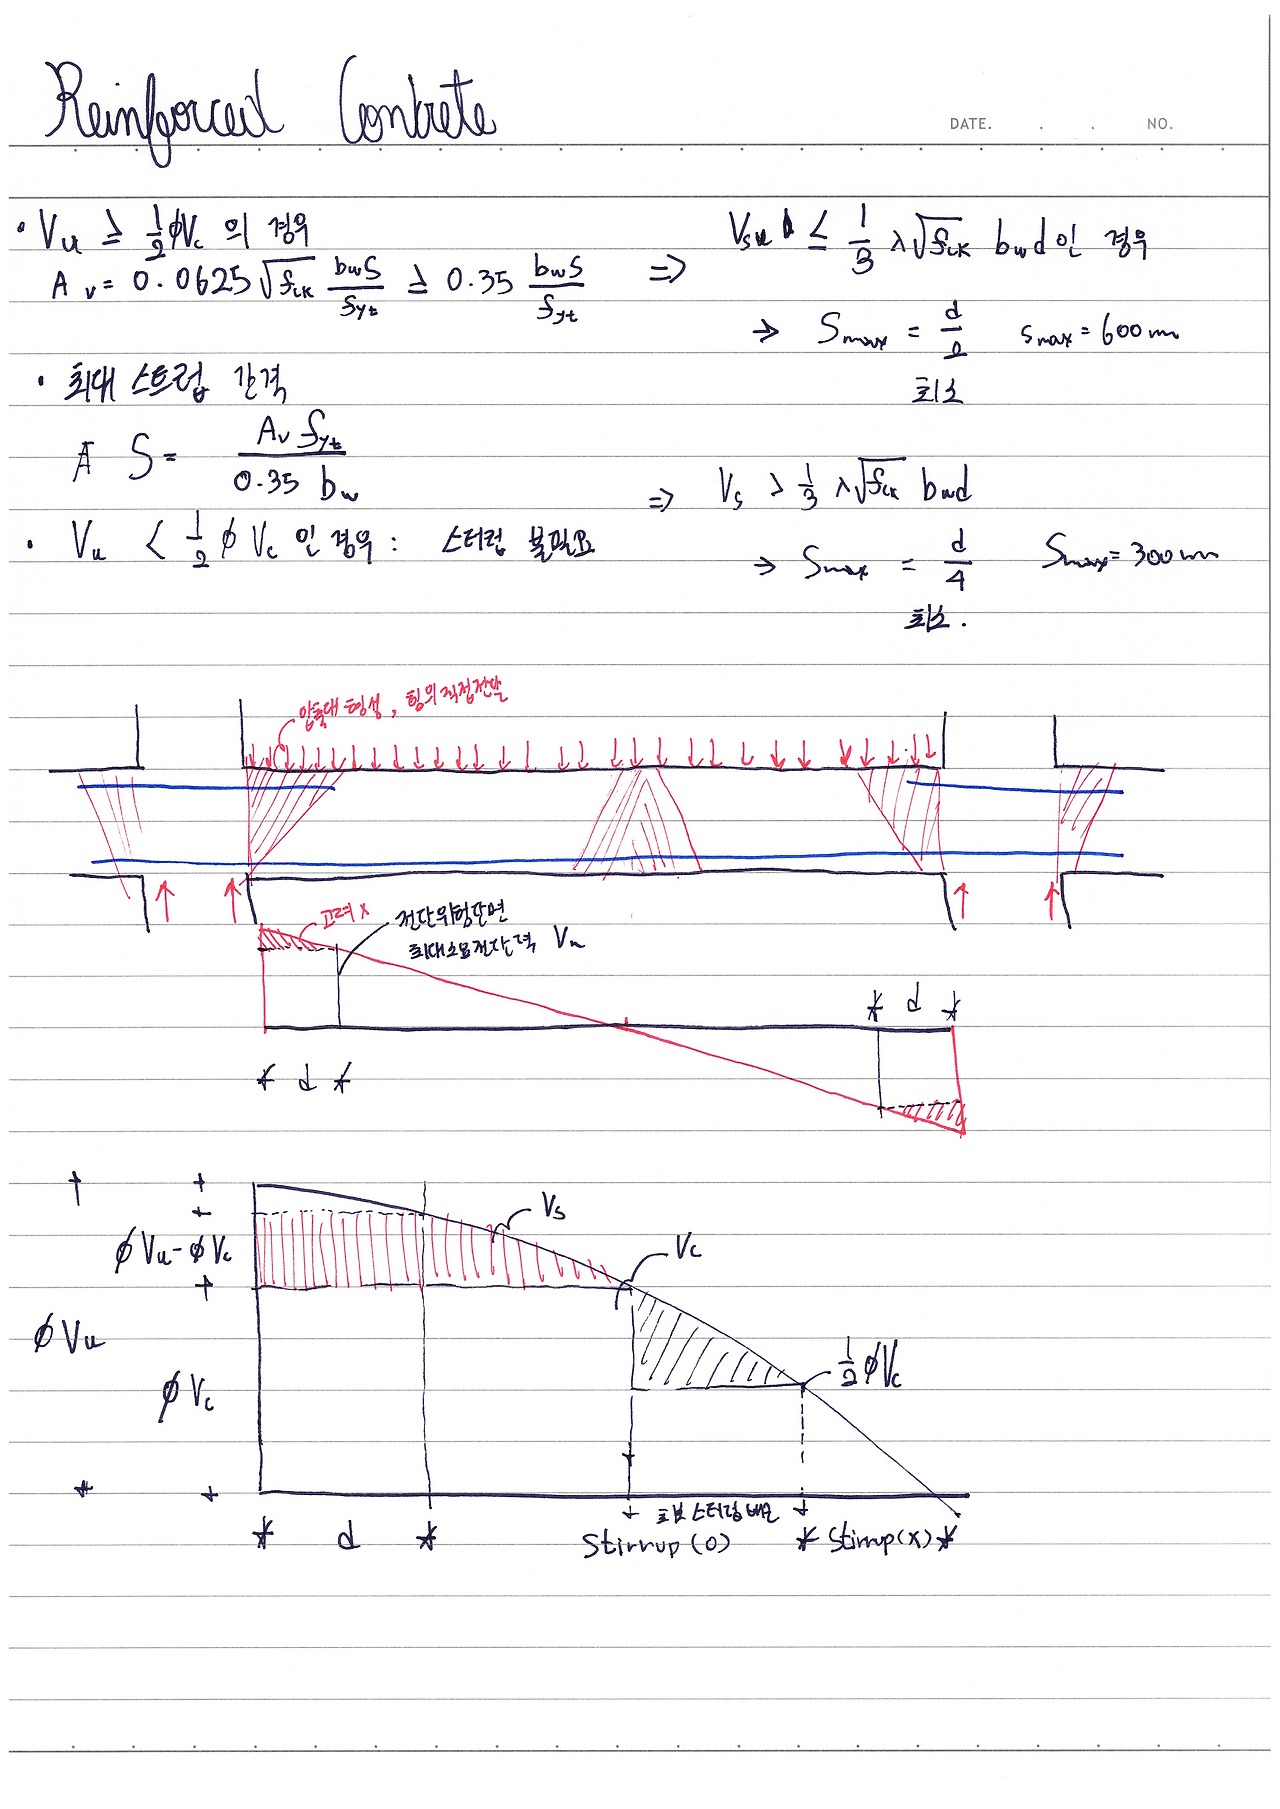 Reinforced Concrete
DATE. . . NO.
• Vu ≥ 1/2 φVc 의 경우
Av = 0.0625 √fck bwS/fyt ≥ 0.35 bwS/fyt
• 최대 스트럽 간격
A S = Av fyt / 0.35 bw
• Vu < 1/2 φ Vc 인 경우 : 스터럽 불필요
≤ 1/3 λ√fck bwd 인 경우
⇒
→ Smax = d/2 Smax = 600mm
최소
⇒ Vs > 1/3 λ√fck bwd
→ Smax = d/4 Smax = 300mm
최소.
압축대 형성, 힘의 직접전달
고려 x
전단위험단면
최대소요전단력 Vu
d
d
Vs
Vc
φVu - φVc
φVu
φVc
1/2 φVc
스터럽
d
Stirrup (O)
Stirrup (X)